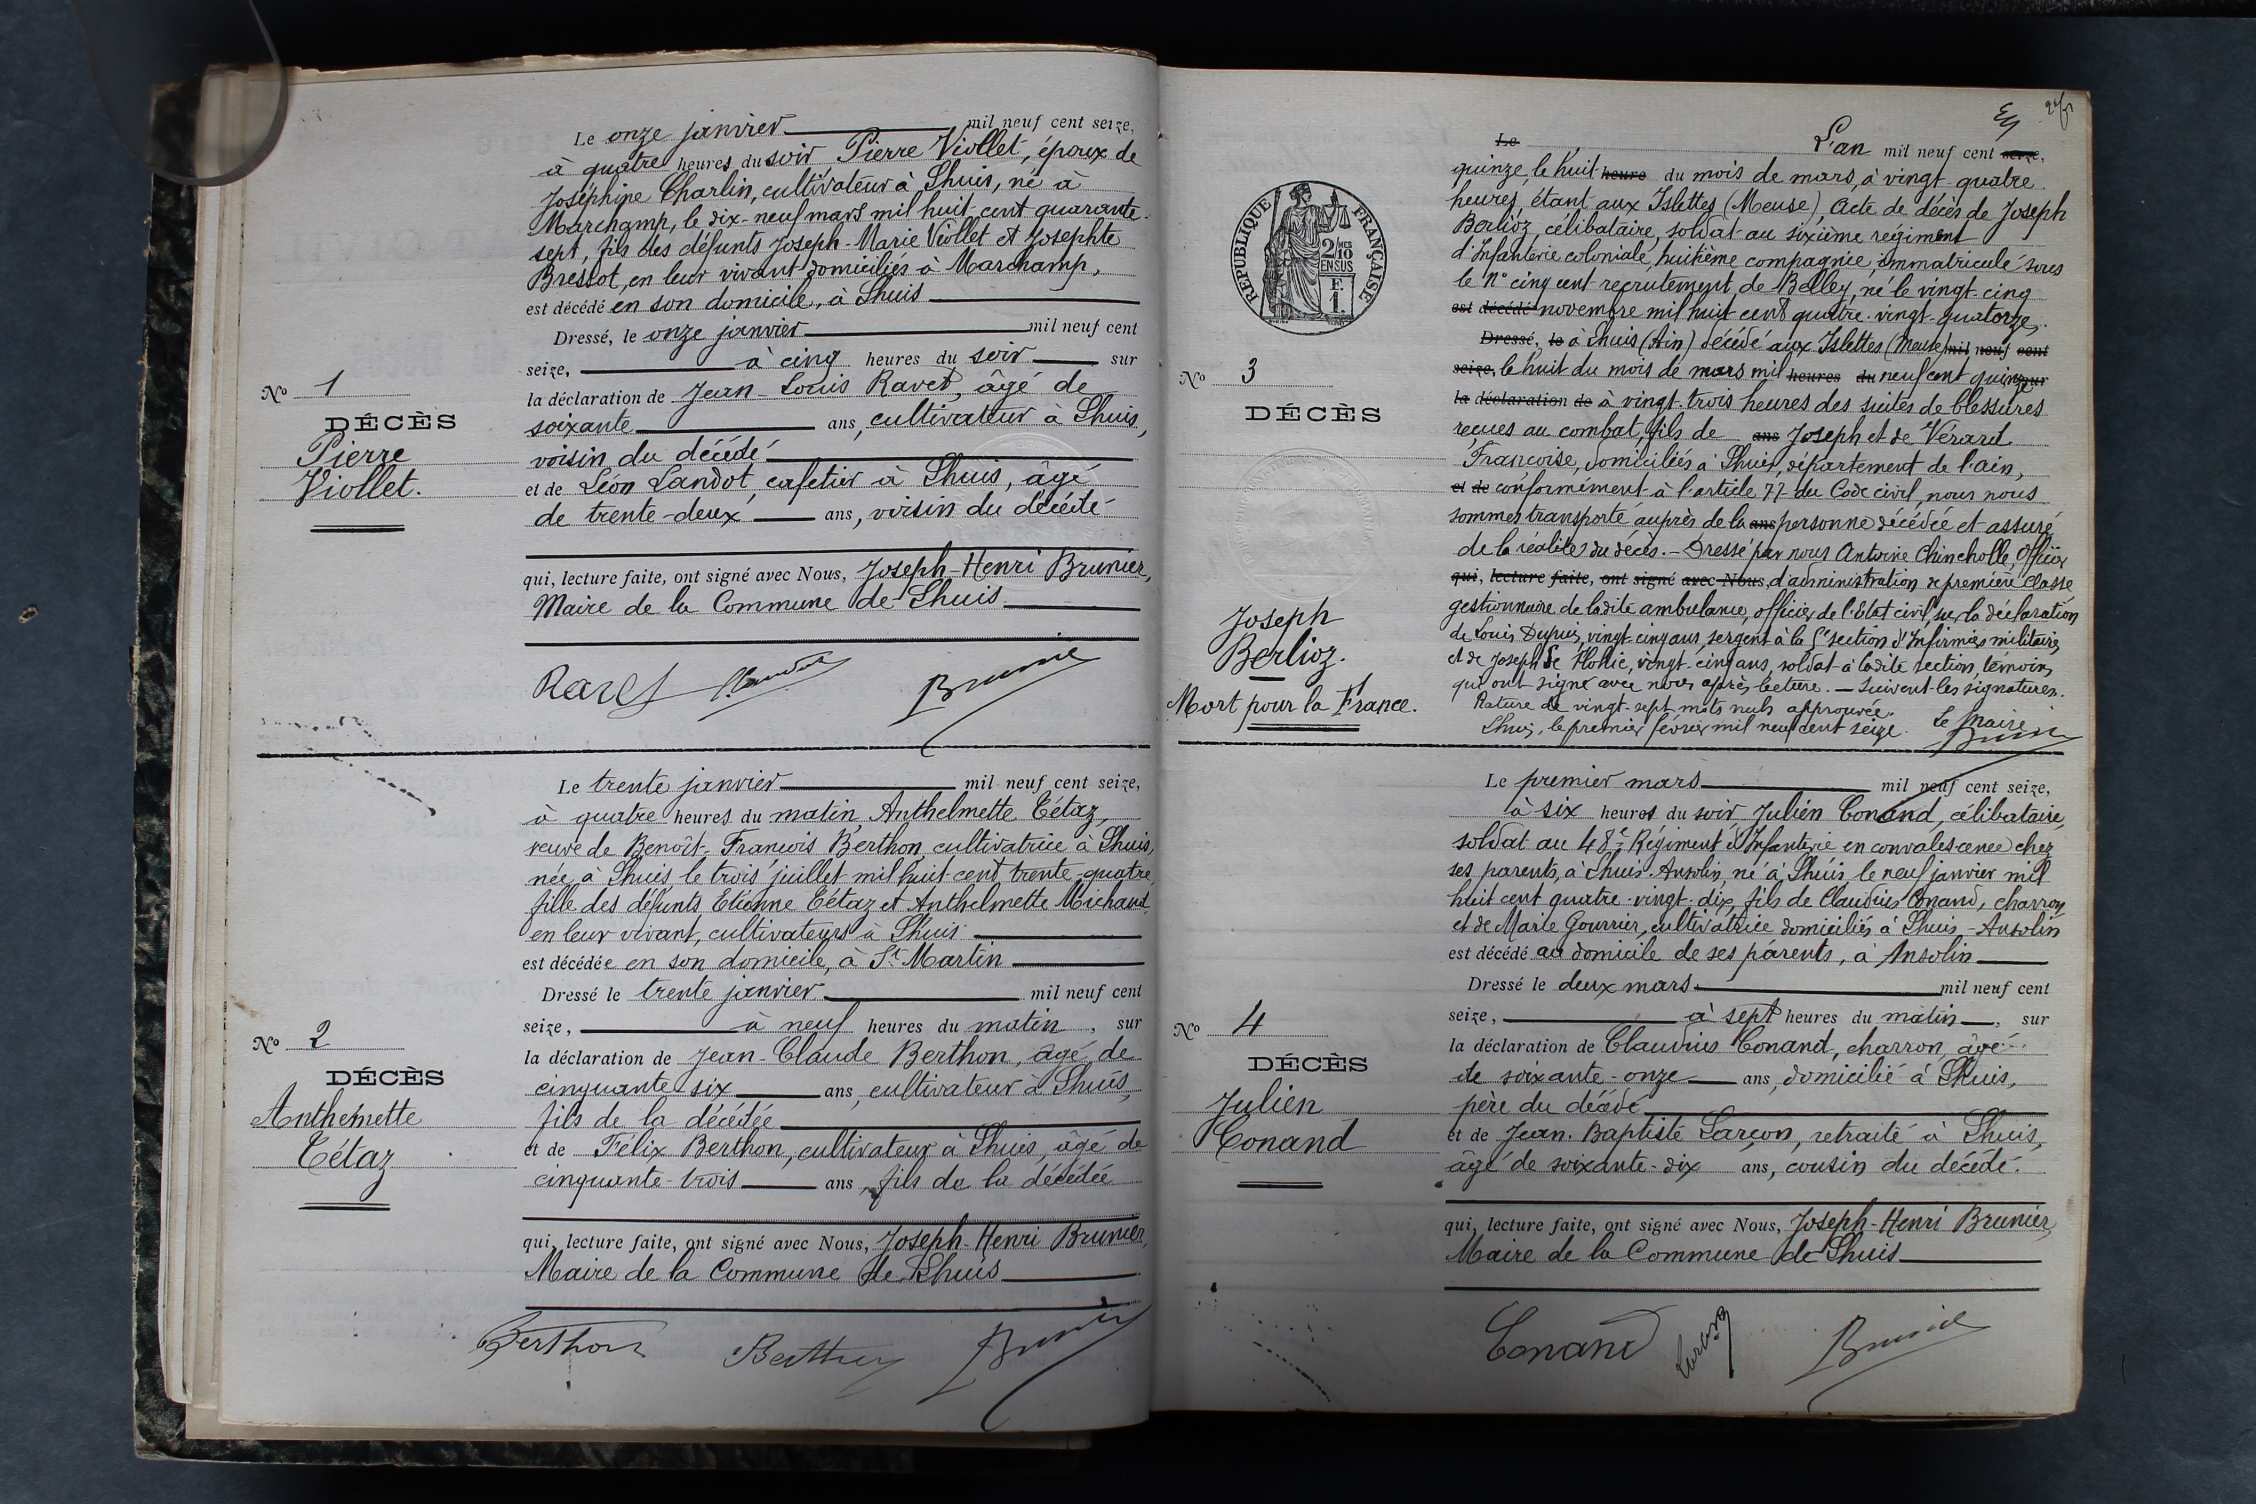 Le onze janvier mil neuf cent seize,
à quatre heures du soir Pierre Viollet, époux de
Joséphine Charlin, cultivateur à Lhuis, né à
Marchamp, le dix-neuf mars mil huit cent quarante-
sept, fils des défunts Joseph-Marie Viollet et Josephte
Bressot, en leur vivant domiciliés à Marchamp,
est décédé en son domicile, à Lhuis
Dressé, le onze janvier mil neuf cent
seize, à cinq heures du soir sur
la déclaration de Jean-Louis Ravet, âgé de
soixante ans, cultivateur à Lhuis,
voisin du décédé
et de Léon Landot, cafetier à Lhuis, âgé
de trente-deux ans, voisin du décédé
qui, lecture faite, ont signé avec Nous, Joseph-Henri Brunier,
Maire de la Commune de Lhuis
Nº 1
DÉCÈS
Pierre
Viollet.
Ravet Brunier
Le trente janvier mil neuf cent seize,
à quatre heures du matin, Anthelmette Tétaz,
veuve de Benoît-François Berthon, cultivatrice à Lhuis,
née à Lhuis le trois juillet mil huit cent trente-quatre,
fille des défunts Etienne Tétaz et Anthelmette Michaud,
en leur vivant, cultivateurs à Lhuis
est décédée en son domicile, à St Martin
Dressé le trente janvier mil neuf cent
seize, à neuf heures du matin, sur
la déclaration de Jean-Claude Berthon, âgé de
cinquante six ans, cultivateur à Lhuis,
fils de la décédée
et de Félix Berthon, cultivateur à Lhuis, âgé de
cinquante-trois ans, fils de la décédée
qui, lecture faite, ont signé avec Nous, Joseph-Henri Brunier,
Maire de la Commune de Lhuis
Nº 2
DÉCÈS
Anthelmette
Tétaz
Berthon Berthon Brunier
Le L'an mil neuf cent seize,
quinze, le huit heure du mois de mars, à vingt-quatre
heures, étant aux Islettes (Meuse), Acte de décès de Joseph
Berlioz, célibataire, soldat au sixième régiment
d'Infanterie coloniale, huitième compagnie, immatriculé sous
le Nº cinq cent recrutement de Belley, né le vingt-cinq
est décédé novembre mil huit cent quatre-vingt-quatorze,
Dressé, le à Lhuis (Ain) décédé aux Islettes (Meuse) mil neuf cent
seize, le huit du mois de mars mil heures du neuf cent quinze sur
la déclaration de à vingt-trois heures des suites de blessures
reçues au combat, fils de ans Joseph et de Vérard
Françoise, domiciliés à Lhuis, département de l'Ain,
et de conformément à l'article 77 du Code civil, nous nous
sommes transporté auprès de la ans personne décédée et assuré
de la réalité du décès. - Dressé par nous Antoine Chincholle, Officier
qui, lecture faite, ont signé avec Nous, d'administration de première classe
gestionnaire de ladite ambulance, officier de l'Etat civil, sur la déclaration
de Louis Dupuis, vingt-cinq ans, sergent à la 5e section d'Infirmiers militaires
et de Joseph Le vingt-cinq ans, soldat à ladite section, témoins,
qui ont signé avec nous après lecture. - Suivent les signatures.
Rature de vingt-sept mots nuls approuvée.
Lhuis, le premier février mil neuf cent seize. Le Maire
Brunier
RÉPUBLIQUE FRANÇAISE
2/10 MES
EN SUS
F
1.
Nº 3
DÉCÈS
Joseph
Berlioz.
Mort pour la France.
Le premier mars mil neuf cent seize,
à six heures du soir Julien Conand, célibataire,
soldat au 48e Régiment d'Infanterie en convalescence chez
ses parents, à Lhuis-Ansolin, né à Lhuis le neuf janvier mil
huit cent quatre-vingt-dix, fils de Claudius Conand, charron,
et de Marie Gourrier, cultivatrice domiciliés à Lhuis-Ansolin
est décédé au domicile de ses parents, à Ansolin
Dressé le deux mars mil neuf cent
seize, à sept heures du matin, sur
la déclaration de Claudius Conand, charron, âgé
de soixante-onze ans, domicilié à Lhuis,
père du décédé
et de Jean-Baptiste Larçon, retraité à Lhuis,
âgé de soixante-dix ans, cousin du décédé.
qui, lecture faite, ont signé avec Nous, Joseph-Henri Brunier,
Maire de la Commune de Lhuis
Nº 4
DÉCÈS
Julien
Conand
Conand Larçon Brunier